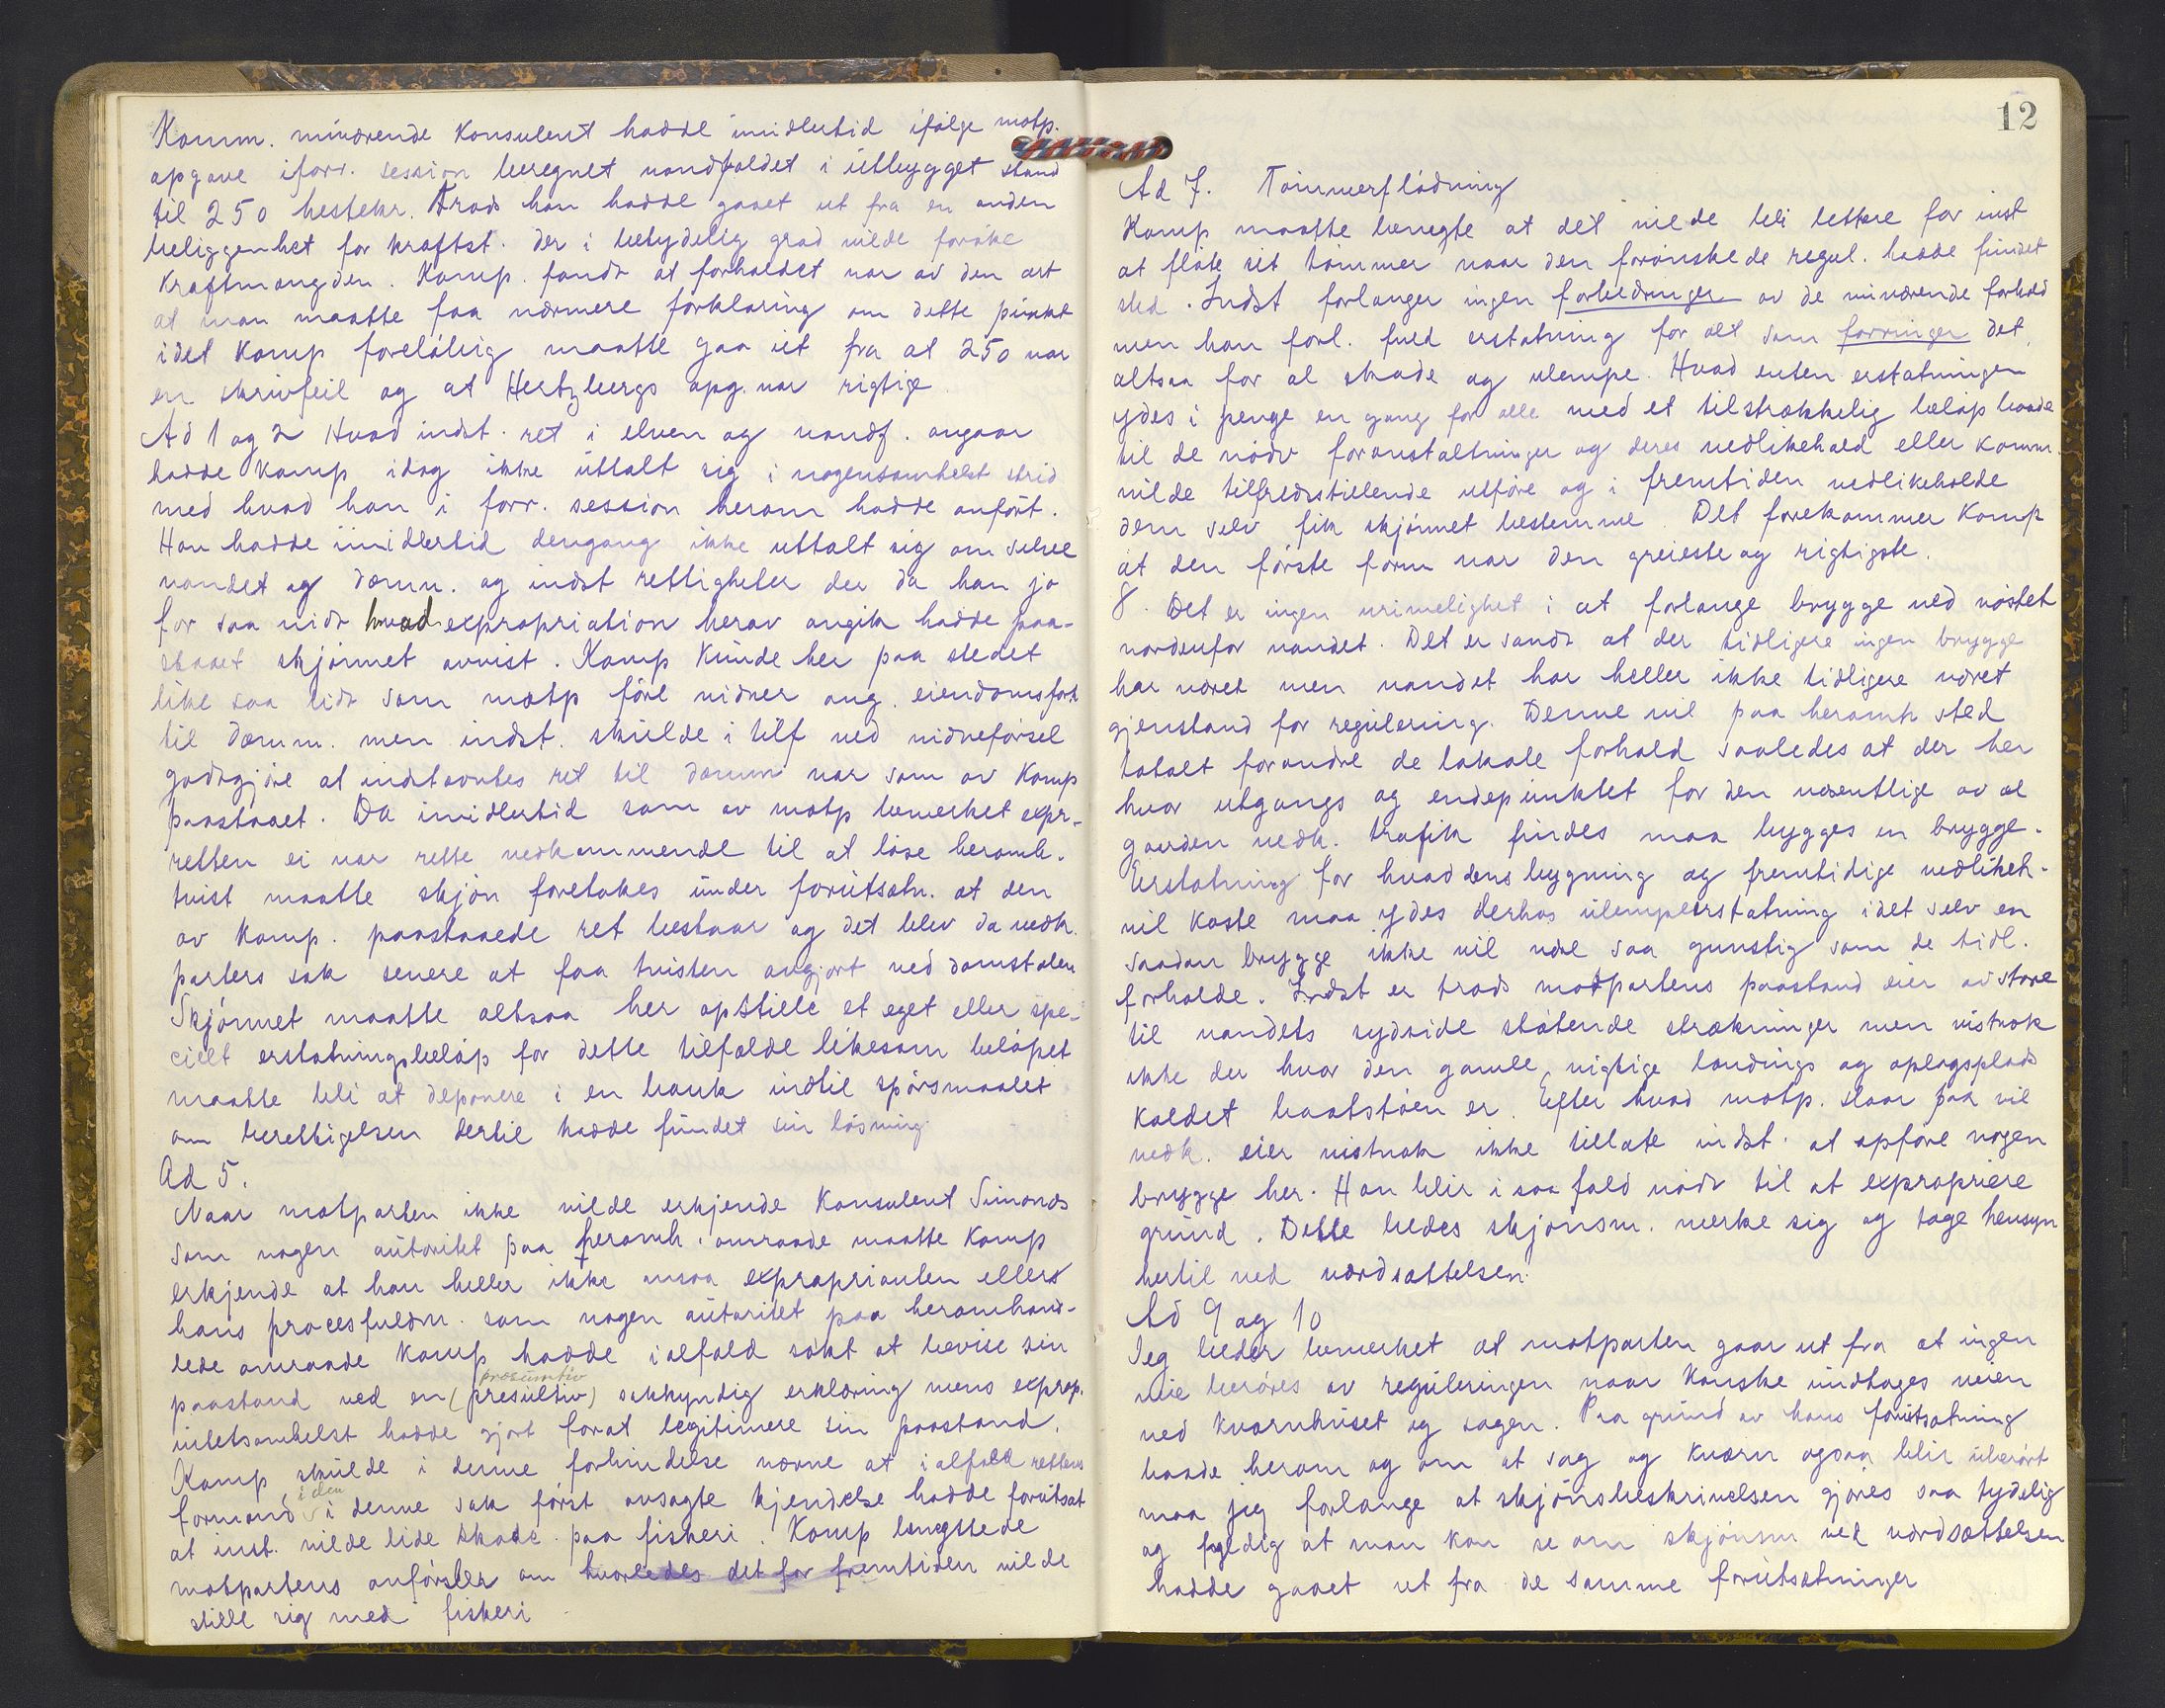 Komm. nuværende Konsulent hadde imidlertid ifølge motp.
opgave i forr. session beregnet vandfaldet i utbygget stand
til 250 hestekr. Trods han hadde gaaet ut fra en anden
beliggenhet for kraftst. der i betydelig grad vilde forøke
kraftmængden. Kamp. fandt at forholdet var av den art
at man maatte faa nærmere forklaring om dette punkt
idet Kamp foreløbig maatte gaa ut fra at 250 var
en skrivfeil og at Hertzbergs opg. var rigtige
Ad 1 og 2 Hvad indst. ret i elven og vandf. angaar
hadde Kamp idag ikke uttalt sig i nogensomhelst strid
med hvad han i forr. session herom hadde anført.
Han hadde imidlertid dengang ikke uttalt sig om selve
vandet og dæmn. og indst rettigheter der da han jo
for saa vidt hvad expropriation herav angik hadde paa-
staaet skjønnet avvist. Kamp kunde her paa stedet
like saa lidt som motp føre vidner ang. eiendomsforh
til dæmn. men indst. skulde i tilf ved vidneførsel
godtgjøre at indtævntes ret til dæmn var som av Kamp
paastaaet. Da imidlertid som av motp bemerket expr-
retten ei var rette vedkommende til at løse heromh.
tvist maatte skjøn foretakes under forutsætn. at den
av Kamp. paastaaede ret bestaar og det blev da vedk.
parters sak senere at faa tvisten avgjort ved domstolen
Skjønnet maatte altsaa her opstille et eget eller spe-
cielt erstatningsbeløp for dette tilfælde likesom beløpet
maatte bli at deponere i en bank indtil spørsmaalet
om berettigelsen dertil hadde fundet sin løsning.
Ad 5.
Naar motparten ikke vilde erkjende Konsulent Simonds
som nogen autoritet paa heromh. omraade maatte Kamp
erkjende at han heller ikke ansaa exproprianten ellers
hans procesfuldm. som nogen autoritet paa heromhand-
lede omraade Kamp hadde ialfald søkt at bevise sin
præsumtiv
paastand ved en (presultiv) sakkyndig erklæring mens exprop.
intetsomhelst hadde gjort forat legitimere sin paastand.
Kamp skulde i denne forbindelse nævne at ialfald rettens
i den
formand i denne sak først avsagte kjendelse hadde forutsat
at inst. vilde lide skade paa fiskeri. Kamp benegtede
motpartens anførsler om hvorledes det for fremtiden vilde
stille sig med fiskeri
12
Ad 7. Tømmerflødning
Kamp maatte benegte at det vilde bli lettere for inst
at fløte sit tømmer naar den forønskede regul. hadde fundet
sted. Indst forlanger ingen forbedringer av de nuværende forhold
men han forl. fuld erstatning for alt som forringer det
altsaa for al skade og ulempe. Hvad enten erstatningen
ydes i penge en gang for alle med et tilstrækkelig beløp baade
til de nødv foranstaltninger og deres vedlikehold eller Komm.
vilde tilfredsstillende utføre og i fremtiden vedlikeholde
dem selv fik skjønnet bestemme. Det forekommer Kamp
at den første form var den greieste og rigtigste.
8. Det er ingen urimelighet i at forlange brygge ved nøstet
nordenfor vandet. Det er sandt at der tidligere ingen brygge
har været men vandet har heller ikke tidligere været
gjenstand for regulering. Denne vil paa heromh sted
totalt forandre de lokale forhold saaledes at der her
hvor utgangs og endepunktet for den væsentlige av al
gaarden vedk. trafik findes maa bygges en brygge.
Erstatning for hvad dens bygning og fremtidige vedlikeh-
vil koste maa ydes derhos ulempeerstatning idet selv en
saadan brygge ikke vil være saa gunstig som de tidl.
forholde. Indst er trods motpartens paastand eier av store
til vandets sydside støtende strækninger men vistnok
ikke der hvor den gamle, vigtige landings og oplagsplads
kaldet baatstøen er. Efter hvad motp. staar paa vil
vedk. eier vistnok ikke tillate indst. at opføre nogen
brygge her. Han blir i saa fald nødt til at expropriere
grund. Dette bedes skjønsm. merke sig og tage hensyn
hertil ved værdsættelsen.
Ad 9 og 10
Jeg beder bemerket at motparten gaar ut fra at ingen
vie berøres av reguleringen naar kanske undtages veien
ved kvernhuset og sagen. Paa grund av hans forutsætning
baade herom og om at sag og kvern ogsaa blir uberørt
maa jeg forlange at skjønsbeskrivelsen gjøres saa tydelig
og fyldig at man kan se om skjønsm ved værdsættelsen
hadde gaaet ut fra de samme forutsætninger